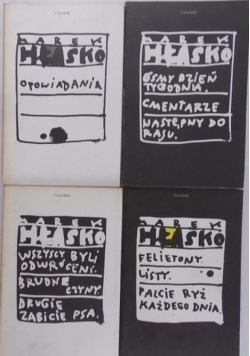 MAREK
HŁASKO
OPOWIADANIA
MAREK
HŁASKO
ÓSMY DZIEŃ
TYGODNIA.
CMENTARZE
NASTĘPNY DO
RAJU.
MAREK
HŁASKO
WSZYSCY BYLI
ODWRÓCENI.
BRUDNE
CZYNY.
DRUGIE
ZABICIE PSA.
MAREK
HŁASKO
FELIETONY.
LISTY.
PALCIE RYŻ
KAŻDEGO DNIA.